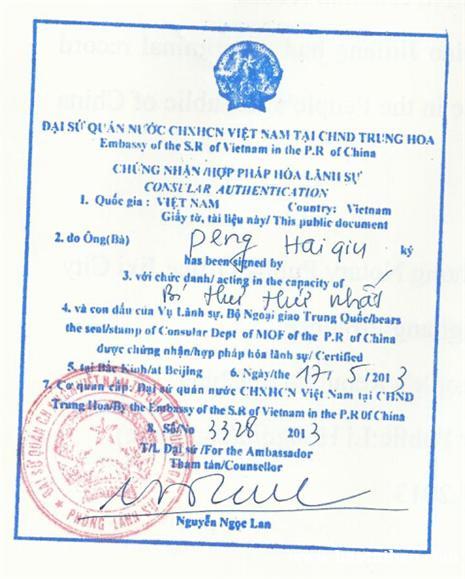 ĐẠI SỨ QUÁN NƯỚC CHXHCN VIỆT NAM TẠI CHND TRUNG HOA
Embassy of the S.R of Vietnam in the P.R of China
CHỨNG NHẬN/HỢP PHÁP HÓA LÃNH SỰ
CONSULAR AUTHENTICATION
1. Quốc gia : VIỆT NAM Country: Vietnam
Giấy tờ, tài liệu này/ This public document
2. do Ông(Bà) Peng Hai qiu ký
has been signed by
3. với chức danh/ acting in the capacity of
Bí thư thứ nhất
4. và con dấu của Vụ Lãnh sự, Bộ Ngoại giao Trung Quốc/bears
the seal/stamp of Consular Dept of MOF of the P.R of China
được chứng nhận/hợp pháp hóa lãnh sự/ Certified
5. tại Bắc Kinh/at Beijing 6. Ngày/the 17/5/2013
7. Cơ quan cấp: Đại sứ quán nước CHXHCN Việt Nam tại CHND
Trung Hoa/By the Embassy of the S.R of Vietnam in the P.R Of China
8. Số/No 3328 2013
T/L Đại sứ /For the Ambassador
Tham tán/Counsellor
Nguyễn Ngọc Lan
PHÒNG LÃNH SỰ
minal record
in the People's
public of China
Notary Pu
City